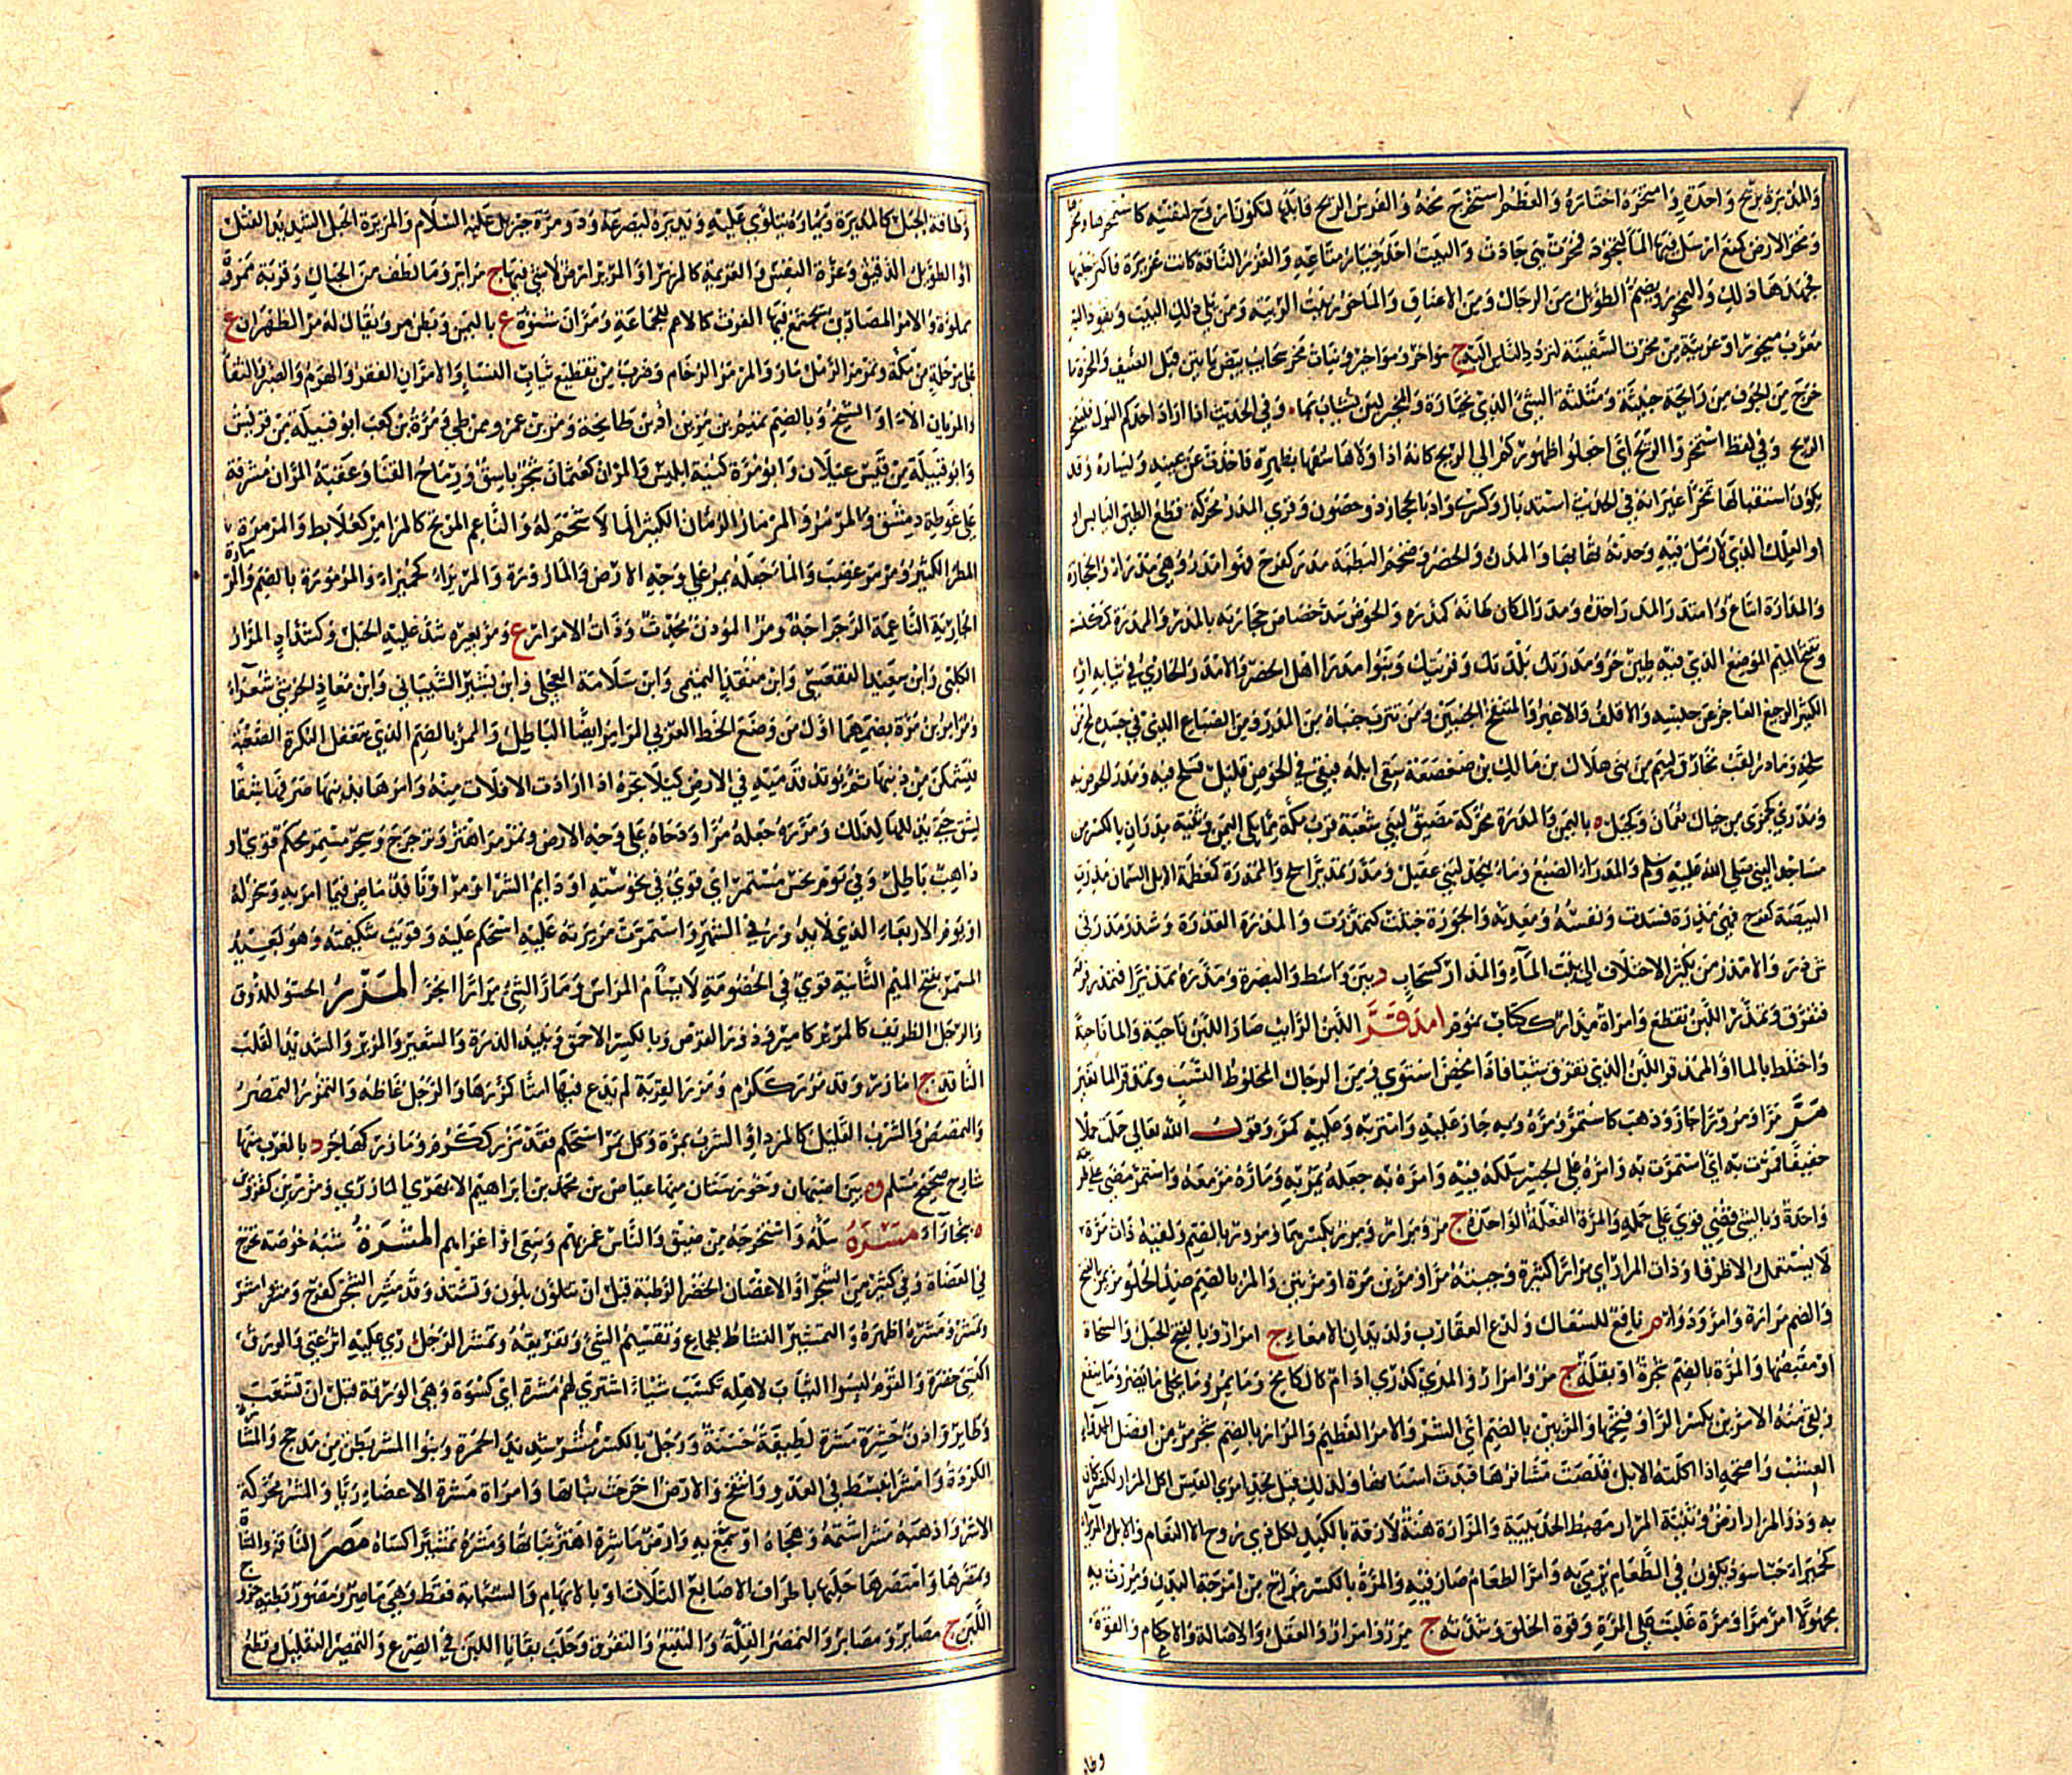 وامتخره اختاره والعظم استخرج مخه والفرس الريح قابلها لتكون اروح لنفسه كاستمخرها
ومخر الارض كمنع ارسل فيها الماء لتجود فمخرت هي جادت والبيت اخذ خيار متاعه والغزر الناقة كانت غزيرة فاكثر حلبها
فجهدها ذلك واليمخور ويضم الطويل من الرجال ومن الاعناق والماخور بيت الريبة ومن يلي ذلك البيت ويقود اليه
معرب ميخور او عربية من مخرت السفينة لتردد الناس اليه ج مواخر ومواخير وبنات مخر سحايب بيض ياتين قبل الصيف والمخرة ما
خرج من الجوف من رايحة خبيثة ومثلثة الشئ الذي تختاره وفي الحديث اذا اراد احدكم البول فليتمخر
الريح وفي لفظ استمخروا الريح اي اجعلوا ظهوركم الى الريح كانه اذا ولاها شقها بظهره فاخذت عن يمينه ويساره وقد
يكون استقبالها تمخرا غير انه في الحديث استدبار المدر محركة قطع الطين اليابس
او العلك الذي لا رمل فيه واحدته بهاء والمدن والحضر وضخم البطنة مدر كفرح فهو امدر وهي مدراء
ومدر المكان طانه كمدره والحوض سد خصاص حجارته بالمدر والممدرة كمكنسة
وتفتح الميم الموضع الذي فيه طين حر ومدرتك بلدتك وقريتك وبنوا مدراء اهل الحضر والامدر الخاري في ثيابه
الكثير الرجيع العاجز عن حبسه والاقلف والاغبر والمنتفخ الجنبين ومن تترب جنباه من المدر ومن الضباع الذي في جسده لمع من
سلحه ومادر لقب مخارق لئيم من بني هلال بن مالك بن صعصعة سقى ابله فبقي في الحوض قليل فسلح فيه ومدر الحوض به
باليمن والمدرة محركة مضيق لبني شعبة قرب مكة مما يلي اليمن وثنية مدران بالكسر من
مساجد النبي صلى الله عليه وسلم والمدراء الضبع وماء بنجد لبني عقيل ومدر تمديرا سلح والممدرة كمعظمة الابل السمان مذرت
البيضة كفرح فهي مذرة فسدت ونفسه ومعدته والجوزة خبثت كتمذرت والمذرة القذرة وشذر مذر
والامذر من يكثر الاختلاف الى بيت الماء والمذار كسحاب د بين واسط والبصرة ومذره تمذيرا فتمذر
فتفرق وتمذر اللبن تقطع امذقر اللبن الرائب صار اللبن ناحية والماء ناحية
واختلط بالماء او الممذقر اللبن الذي تفرق شيئا فاذا مخض استوى ومن الرجال المخلوط النسب وتمذقر الماء تغير
مر مرا ومرورا جاز وذهب كاستمر ومره وبه جاز عليه وامتر به وعليه كمر وقول الله تعالى حملت حملا
خفيفا فمرت به اي استمرت به وامره على الجسر سلكه فيه وامره به جعله يمر به وماره مر معه واستمر مضى على طريقة
واحدة وبالشئ قوي على حمله والمرة الفعلة الواحدة ج مر ومرار ومرر بكسرهما ومرور بالضم ولقيه ذات مرة
لا يستعمل الا ظرفا وذات المرار اي مرارا كثيرة وجئته مرا او مرين مرة او مرتين والمر بالضم ضد الحلو مر يمر بالفتح
والضم مرارة وامر ودواء م نافع للسعال ولدغ العقارب ولديدان الامعاء ج امرار وبالفتح الحبل والمسحاة
او مقبضها والمرة بالضم شجرة او بقلة ج مر وامرار والمري كدري ادام كالكامخ وما يمر وما يحلي ما يضر وما ينفع
ولقي منه الامرين بكسر الراء وفتحها والمريين بالضم اي الشر والامر العظيم والمرار بالضم شجر مر من افضل
العشب واضخمه اذا اكلته الابل قلصت مشافرها فبدت اسنانها ولذلك قيل لجد امرئ القيس اكل المرار لكشر كان
به وذو المرار ارض وثنية المرار مهبط الحديبية والمرارة هنة لازقة بالكبد لكل ذي روح الا النعام والابل والمريراء
كحميراء حب اسود يكون في الطعام يرمى به وامر الطعام صار فيه والمرة بالكسر مزاج من امزجة البدن ومررت به
مجهولا امر مرا ومرة غلبت على المرة وقوة الخلق وشدته ج مرر وامرار والعقل والاصالة والاحكام والقوة
وطا
وطاقة الحبل كالمريرة ويماره يتلوى عليه ويديره ليصرعه وذو مرة جبريل عليه السلام والمريرة الحبل الشديد الفتل
او الطويل الدقيق وعزة النفس والعزيمة كالمرير او المرير ارض لا شئ فيها ج مراير وما لطف من الحبال وقربة ممرورة
مملوة والامر المصارين يجتمع فيها الفرث كالاعم للجماعة ومران شنؤة ع باليمن وبطن مر ويقال له مر الظهران ع
على مرحلة من مكة وتمرمر الرمل مار والمرمر الرخام وضرب من تقطيع ثياب النساء والامران الفقر والهرم والصبر والثفاء
والمريان الالاء والشيح وبالضم تميم بن مر بن اد بن طابخة ومر بن عمرو من طي ومرة بن كعب ابو قبيلة من قريش
وابو قبيلة من قيس عيلان وابو مرة كنية ابليس والمران كعثمان شجر باسق ورماح القنا وعقبة المران مشرفة
على غوطة دمشق والمرمر والمرمار الرمان الكثير الماء لا شحم له والناعم المرتج كالمرامر كعلابط والمرمورة
المطر الكثير ومرمر غضب والماء جعله يمر على وجه الارض والمارورة والمريراء كحميراء والمرمورة بالضم والمرمارة
الجارية الناعمة الرجراجة ومر المؤذن محدث وذات الامرار ع ومر بعيره شد عليه الحبل وكشداد المرار
الكلبي وابن سعيد الفقعسي وابن منقذ التميمي وابن سلامة العجلي وابن بشير الشيباني وابن معاذ الحرشي شعراء
ومرامر بن مرة بضمهما اول من وضع الخط العربي المرامر ايضا الباطل والممر بالضم الذي يتغفل البكرة الصعبة
فيتمكن من ذنبها ثم يوتد قدميه في الارض كيلا تجره اذا ارادت الافلات منه وامرها بذنبها صرفها شقا
لشق حتى يذللها لذلك ومرمره جعله مرا ودحاه على وجه الارض وتمرمر اهتز وترجرج وسحر مستمر محكم قوي او
ذاهب باطل وفي يوم نحس مستمر اي قوي في نحوسته او دايم الشر او مر او نافذ ماض فيما امر به وسخر له
او يوم الاربعاء الذي لا يدور في الشهر واستمرت مريرته عليه استحكم عليه وقويت شكيمته وهو بعيد
المستمر بفتح الميم الثانية قوي في الخصومة لا يسام المراس ومار الشئ مرارا انجر المزر الحسو للذوق
والرجل الظريف كالمزير كامير ودون القرص وبالكسر الاحمق ونبيذ الذرة والشعير والمزير والشديد القلب
النافذ ج امازر وقد مزر ككرم ومزر القربة لم يدع فيها امتا كمزرها والرجل غاظه والتمزر التمصر
والتمصص والشرب القليل كالمزر او الشرب بمرة وكل ثمر استحكم فقد مزر ككرم ومازر كهاجر د بالمغرب منها
شارح صحيح مسلم و ه بين اصبهان وخوزستان منها عياض بن محمد بن ابراهيم الابهري المازري ومزرين كقزوين
ه ببخارا مسره سله واستخرجه من ضيق والناس غمزهم وسعى او اغراهم المشرة شبه خوصة تخرج
في العضاه وفي كثير من الشجر او الاغصان الخضر الرطبة قبل ان تتلون بلون وتشتد وقد مشر الشجر كفرح ومشر وامشر
وتمشر ومشره اظهره والتمشير النشاط للجماع وتقسيم الشئ وتفريقه وتمشر الرجل رئي عليه اثر غنى والورق
اكتسى خضرة والقوم لبسوا الثياب لاهله تكسب شيئا اشترى لهم مشرة اي كسوة وهي الورقة قبل ان تشعب
وطاير واذن حشرة مشرة لطيفة حسنة ورجل بالكسر شديد الحمرة وبنوا المشر بطن من مذحج
وامشر انبسط في العدو وانتفخ والارض اخرجت نباتها وامراة مشرة الاعضاء ريا والمشر محركة
الاشر واذهبه مشرا شتمه وهجاه او سمع به وارض ماشرة اهتز نباتها ومشره تمشيرا كساه مصر الناقة والشاة
وتمصرها وامتصرها حلبها باطراف الاصابع الثلاث او بالابهام والسبابة فقط وهي ماصر ومصور بطية خروج
اللبن ج مصار ومصاير والتمصر القلة والتتبع والتفرق وحلب بقايا اللبن في الضرع والتمصير التقليل وقطع